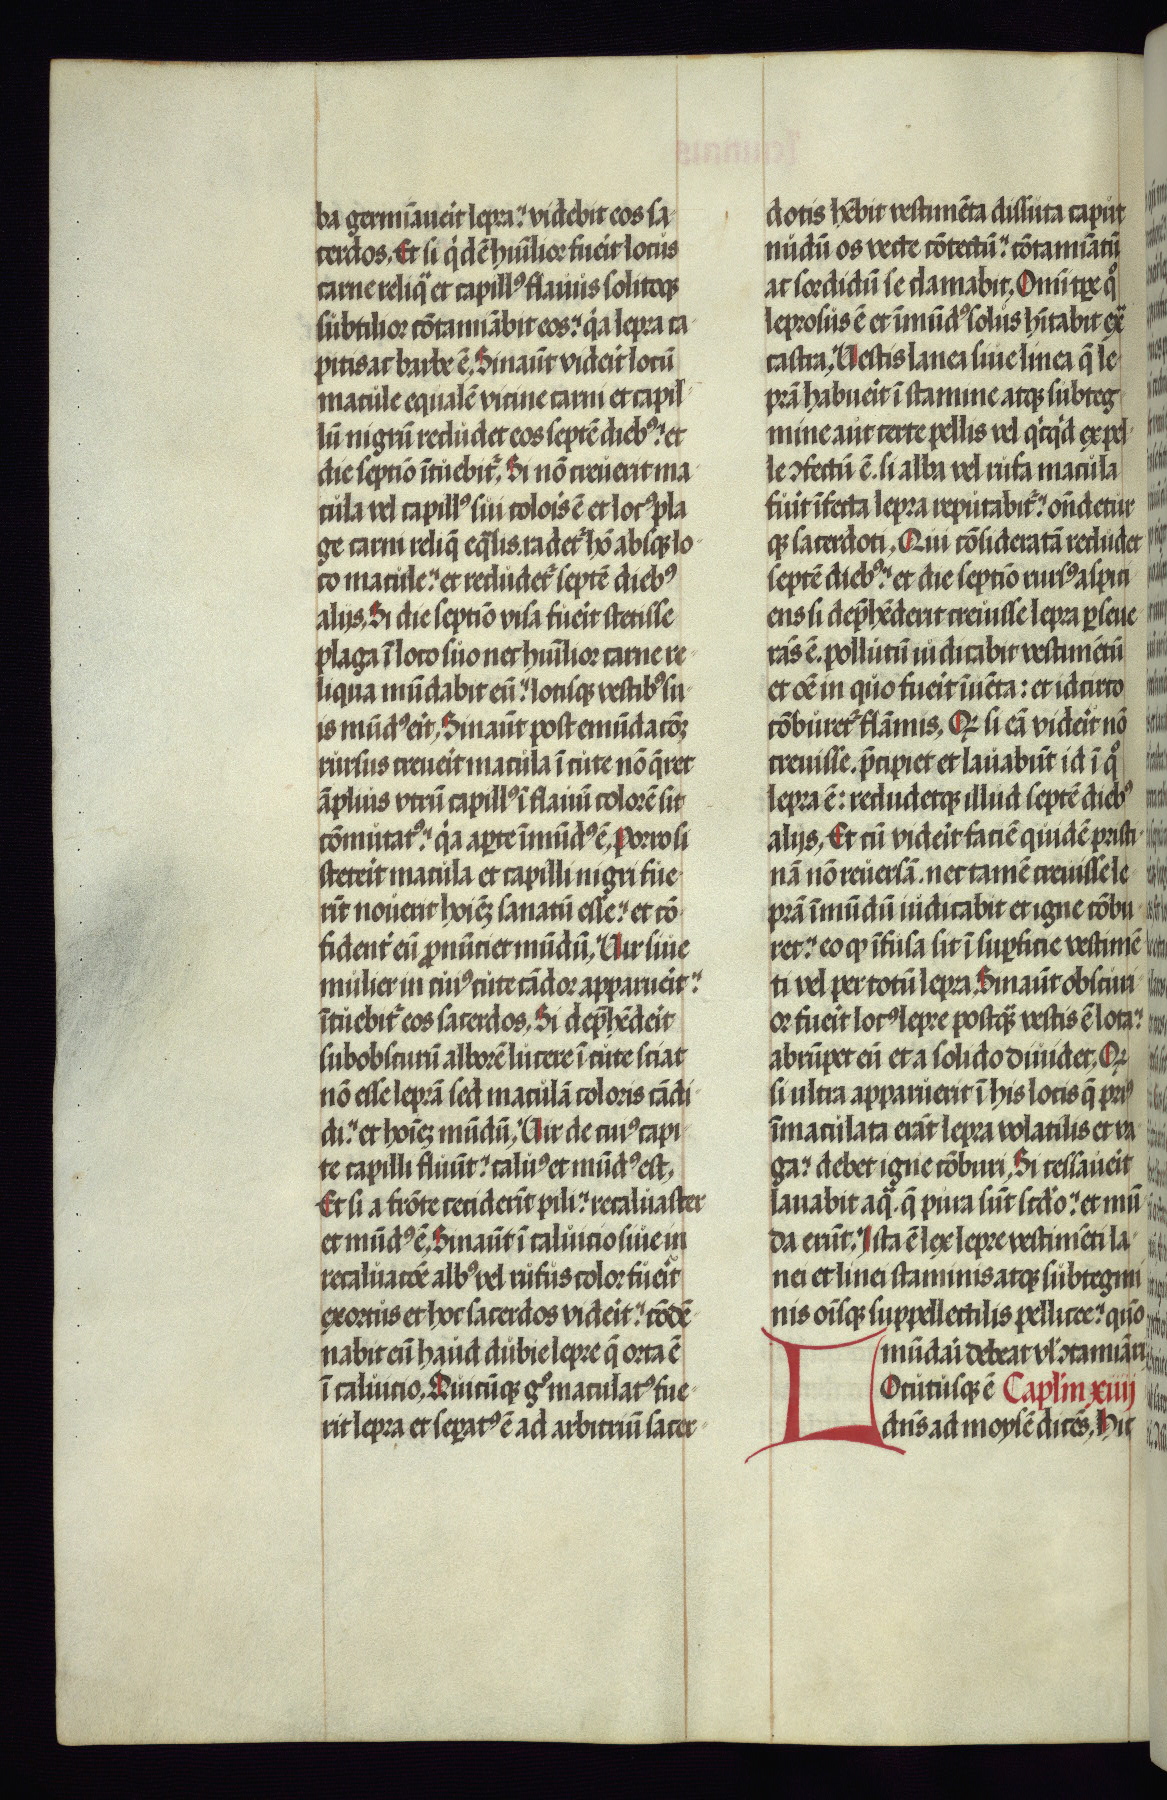 ba germīaueīt lepra: videbit eos sa
cerdos. Et si qͥdē huīlior fueīt locus
carne reliqᷓ et capillꝰ flauus solitoqꝫ
subtilior cōtamīabit eos: qͥa lepra ca
pitis ac barbe ē. Sinaūt videīt locū
macule equalē vicine carni et capil
lū nigrū recludet eos septē diebꝰ: et
die septīo ītuebit᷑. Si nō creuerit ma
cula vel capillꝰ sui coloīs ē et locꝰ pla
ge carni reliq̄ eq̄lis. radet᷑ hō absqꝫ lo
co macule: et recludet᷑ septē diebꝰ
alijs. Si die septīo visa fueīt stetisse
plaga ī loco suo nec huīlior carne re
liqua mūdabit eū: lotisqꝫ vestibꝰ su
is mūdꝰ eīt. Sinaūt post emūdacōꝫ
rursus creueīt macula ī cute nō q̄ret
āplius vtrū capillꝰ ī flauū colorē sit
cōmutatꝰ: qͥa aꝑte īmūdꝰ ē. Porro si
steteīt macula et capilli nigri fue
rīt nouerit hoīeꝫ sanatū esse: et cō
fident᷑ eū ꝓnūciet mūdū. Uir siue
mulier in cuiꝰ cute cādor apparueīt:
ītuebit᷑ eos sacerdos. Si dep̄hēdeīt
subobscurū alborē lucere ī cute sciat
nō esse leprā sed maculā coloris cādi
di: et hoīeꝫ mūdū. Uir de cuiꝰ capi
te capilli fluūt: caluꝰ et mūdꝰ est.
Et si a frōte ceciderīt pili: recaluaster
et mūdꝰ ē. Sinaūt ī caluicio siue in
recaluacōe albꝰ vel rufus color fueīt
exortus et hoc sacerdos videīt: cōdē
nabit eū haud dubie lepre q̄ orta ē
ī caluicio. Quicūqꝫ gͦ maculatꝰ fue
rit lepra et seꝑatꝰ ē ad arbitriū sacer
dotis hēbit vestimēta dissuta caput
nudū os veste cōtectū: cōtamīatū
ac sordidū se clamabit. Omī tꝑe qͦ
leprosus ē et īmūdꝰ solus hītabit exͣ
castra. Uestis lanea siue linea q̄ le
prā habueīt ī stamine atqꝫ subteg
mine aut certe pellis vel qͥcqͥd ex pel
le ꝯfectū ē. si alba vel rufa macula
fuīt īfecta lepra reputabit᷑: ondetur
qꝫ sacerdoti. Qui cōsideratā recludet
septē diebꝰ: et die septīo rursꝰ aspici
ens si dep̄hēderit creuisse lepra ꝑseue
rās ē. pollutū iudicabit vestimētū
et oē in quo fueīt īuēta: et idcirco
cōburet᷑ flāmis. Qꝫ si eā videīt nō
creuisse. p̄cipiet et lauabūt id ī qͦ
lepra ē: recludetqꝫ illud septē diebꝰ
alijs. Et cū videīt faciē quidē pristi
nā nō reuersā. nec tamē creuisse le
prā īmūdū iudicabit et igne cōbu
ret: eo qꝫ īfusa sit ī suꝑficie vestimē
ti vel per totū lepra. Sinaūt obscuri
or fueīt locꝰ lepre postqᷓ vestis ē lota:
abrūpet eū et a solido diuidet. Qꝫ
si vltra apparuerit ī his locis q̄ priꝰ
īmaculata erāt lepra volatilis et va
ga: debet igne cōburi. Si cessaueīt
lauabit aqᷓ. q̄ pura sūt scdo: et mū
da erūt. Ista ē lex lepre vestimēti la
nei et linei staminis atqꝫ subtegmi
nis oīsqꝫ suppellectilis pellicee: quō
mūdaī debeat vl' ꝯtamīari
Ocutusqꝫ ē Caplm xiiij
dn̄s ad moysē dicēs. Hic